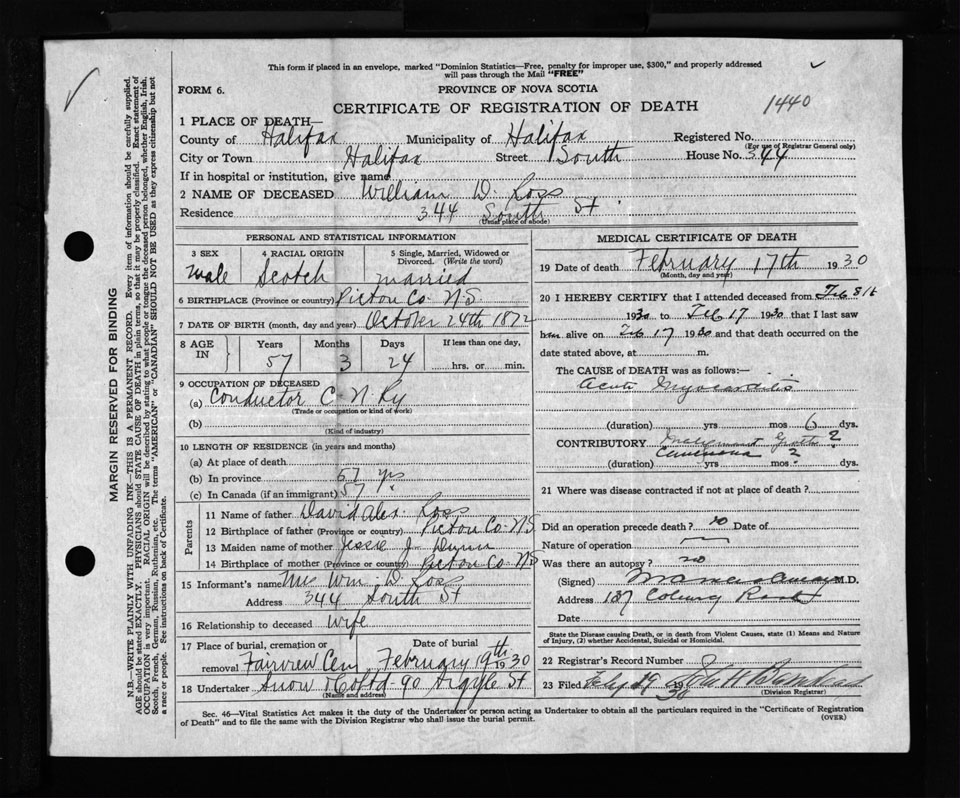 This form if placed in an envelope, marked "Dominion Statistics—Free, penalty for improper use, $300," and properly addressed
will pass through the Mail "FREE"
FORM 6.
PROVINCE OF NOVA SCOTIA
CERTIFICATE OF REGISTRATION OF DEATH
1440
1 PLACE OF DEATH—
County of Halifax Municipality of Halifax Registered No.
(For use of Registrar General only)
City or Town Halifax Street South House No. 344
If in hospital or institution, give name
2 NAME OF DECEASED William D. Ross
Residence 344 South St.
(Usual place of abode)
PERSONAL AND STATISTICAL INFORMATION
3 SEX 4 RACIAL ORIGIN 5 Single, Married, Widowed or Divorced. (Write the word)
Male Scotch married
6 BIRTHPLACE (Province or country) Pictou Co. N.S.
7 DATE OF BIRTH (month, day and year) October 24th 1872
8 AGE IN Years Months Days If less than one day,
57 3 24 hrs. or min.
9 OCCUPATION OF DECEASED
(a) Conductor C. N. Ry
(Trade or occupation or kind of work)
(b)
(Kind of industry)
10 LENGTH OF RESIDENCE (in years and months)
(a) At place of death
(b) In province 57 yrs
(c) In Canada (if an immigrant) 57 "
Parents
11 Name of father David Alex Ross
12 Birthplace of father (Province or country) Pictou Co. N.S
13 Maiden name of mother Jessie J. Dunn
14 Birthplace of mother (Province or country) Pictou Co. N.S
15 Informant's name Mrs Wm. D. Ross
Address 344 South St
16 Relationship to deceased Wife
17 Place of burial, cremation or Date of burial
removal Fairview Cem February 19th 1930
18 Undertaker Snow & Co Ltd - 90 Argyle St
(Name and address)
MEDICAL CERTIFICATE OF DEATH
19 Date of death February 17th 1930
(Month, day and year)
20 I HEREBY CERTIFY that I attended deceased from Feb 8th
1930 to Feb 17 1930 that I last saw
him alive on Feb 17 1930 and that death occurred on
date stated above, at m.
The CAUSE of DEATH was as follows:—
Acute Myocarditis
(duration) yrs mos 6 dys.
CONTRIBUTORY ?
(duration) yrs 2 mos. dys.
21 Where was disease contracted if not at place of death?
Did an operation precede death? no Date of
Nature of operation
Was there an autopsy? no
(Signed) M.D.
Address 187 Coburg Road
Date
State the Disease causing Death, or in death from Violent Causes, state (1) Means and Nature
of Injury, (2) whether Accidental, Suicidal or Homicidal.
22 Registrar's Record Number
23 Filed Feby 19 1930 John H
(Division Registrar)
Sec. 46—Vital Statistics Act makes it the duty of the Undertaker or person acting as Undertaker to obtain all the particulars required in the "Certificate of Registration
of Death" and to file the same with the Division Registrar who shall issue the burial permit.
(OVER)
MARGIN RESERVED FOR BINDING
N.B.—WRITE PLAINLY WITH UNFADING INK—THIS IS A PERMANENT RECORD. Every item of information should be carefully supplied.
AGE should be stated EXACTLY. PHYSICIANS should STATE CAUSE OF DEATH in plain terms, so that it may be properly classified. Exact statement of
OCCUPATION is very important. RACIAL ORIGIN will be described by stating to what people or tongue the deceased person belonged, whether English, Irish,
Scotch, French, German, Russian, Ruthenian, etc. The terms "AMERICAN" or "CANADIAN" SHOULD NOT BE USED as they express citizenship but not
a race or people. See instructions on back of Certificate.